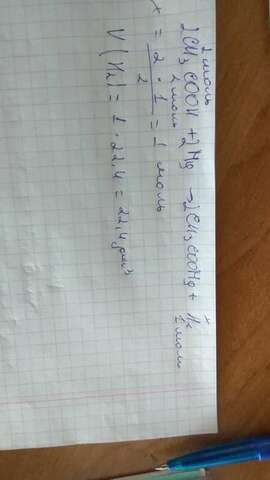 2 моль x
2CH₃COOH + 2Mg → 2CH₃COOMg + H₂
2 моль 1 моль
x = 2 · 1 / 2 = 1 моль
V(H₂) = 1 · 22,4 = 22,4 дм³